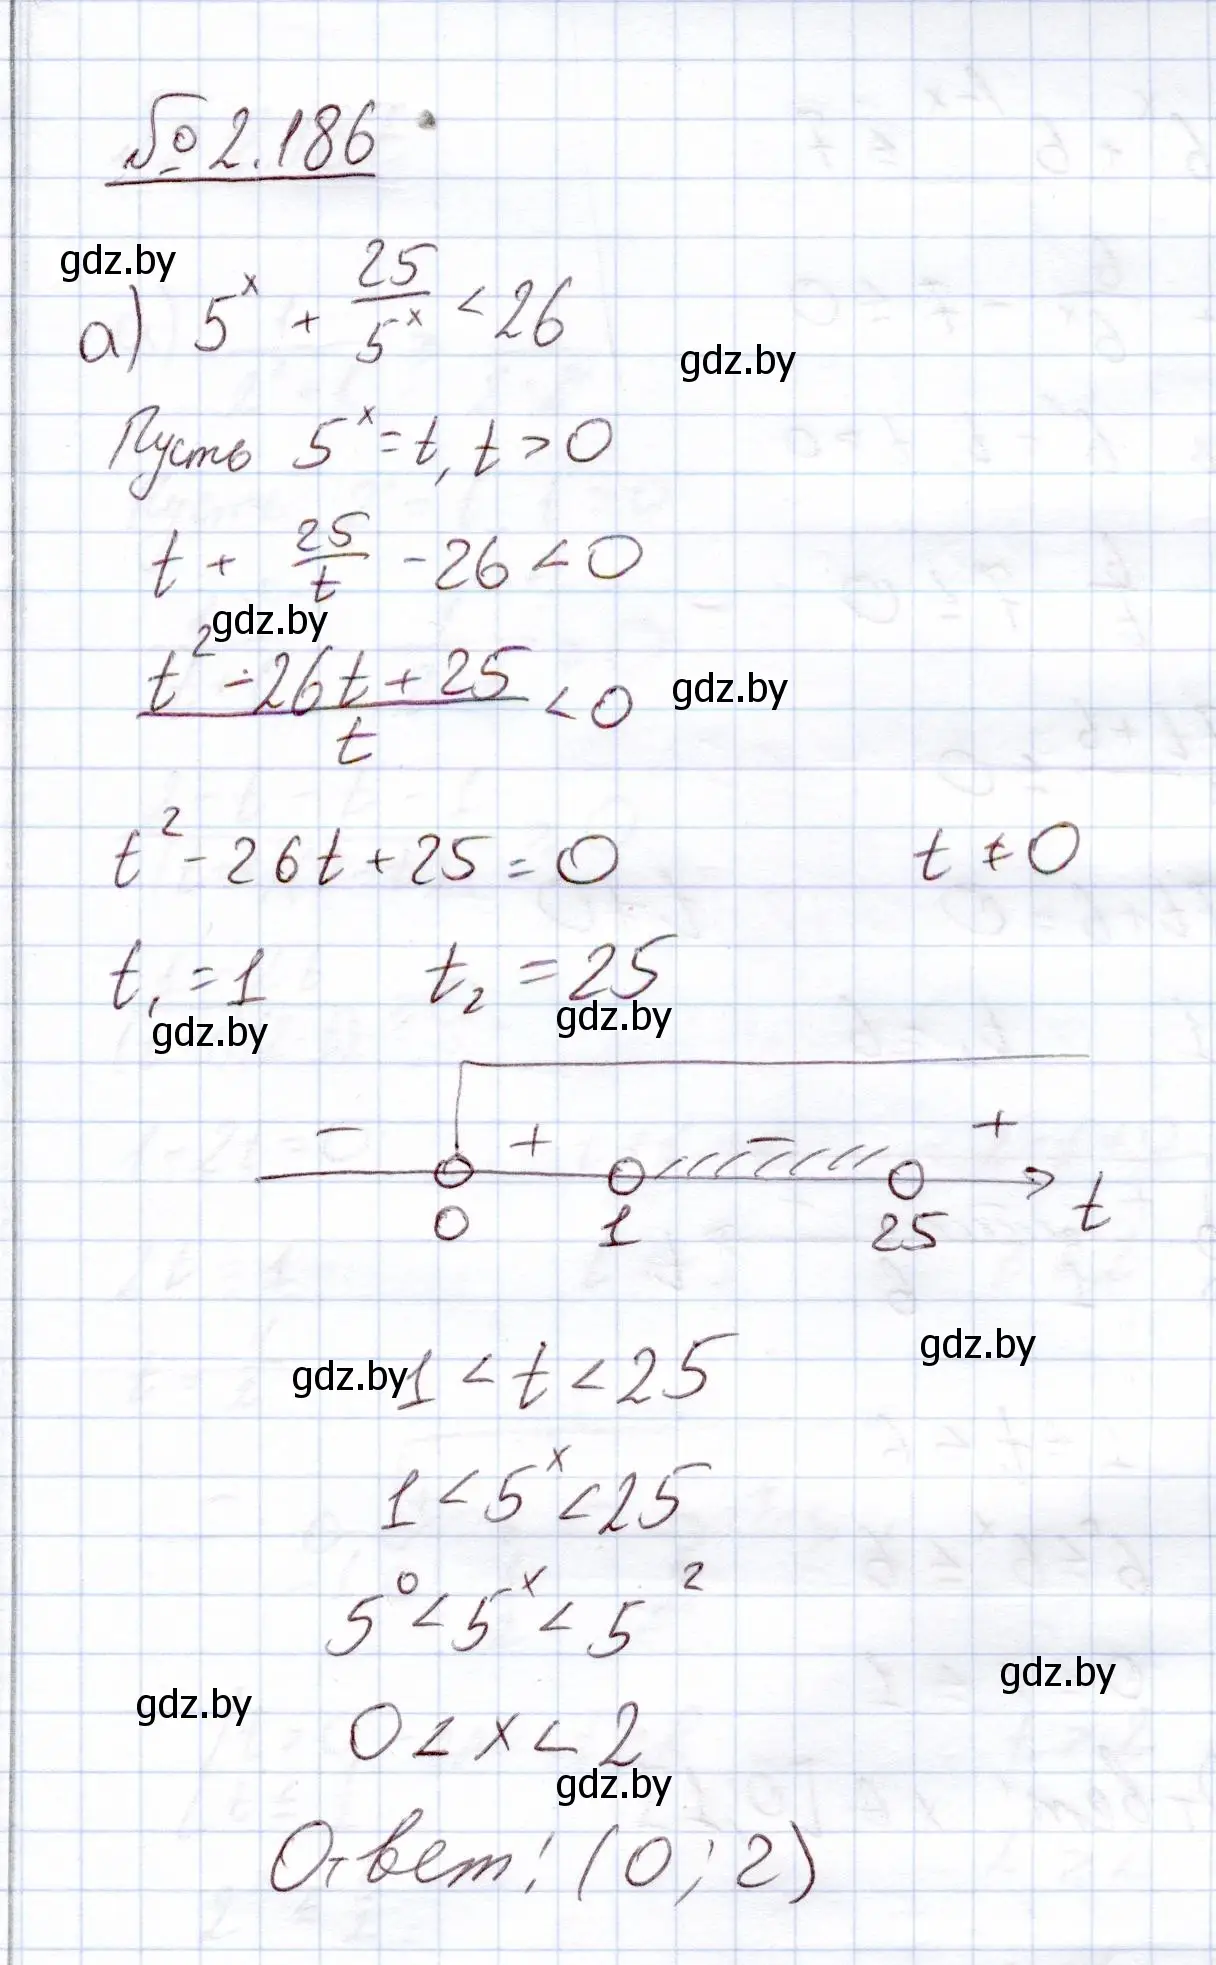 № 2.186
gdz.by
а) 5^x + 25/5^x < 26
gdz.by
Пусть 5^x = t, t > 0
t + 25/t - 26 < 0
gdz.by
(t^2 - 26t + 25)/t < 0
gdz.by
t^2 - 26t + 25 = 0 t ≠ 0
t₁ = 1 t₂ = 25
gdz.by gdz.by
− + − +
0 1 25 t
gdz.by
gdz.by 1 < t < 25
1 < 5^x < 25
5^0 < 5^x < 5^2
gdz.by
gdz.by
0 < x < 2
gdz.by
Ответ: (0; 2)